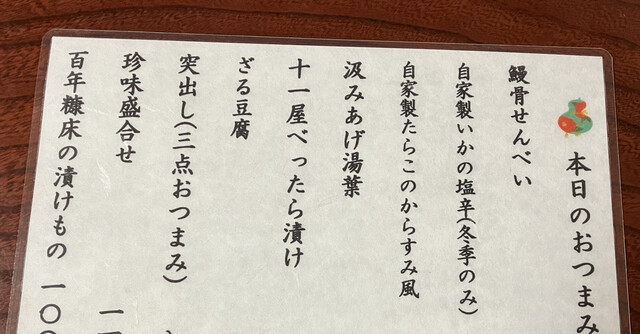 本日のおつまみ
鰻骨せんべい
自家製いかの塩辛(冬季のみ)
自家製たらこのからすみ風
汲みあげ湯葉
十一屋べったら漬け
ざる豆腐
突出し(三点おつまみ)
珍味盛合せ
百年糠床の漬けもの 一〇